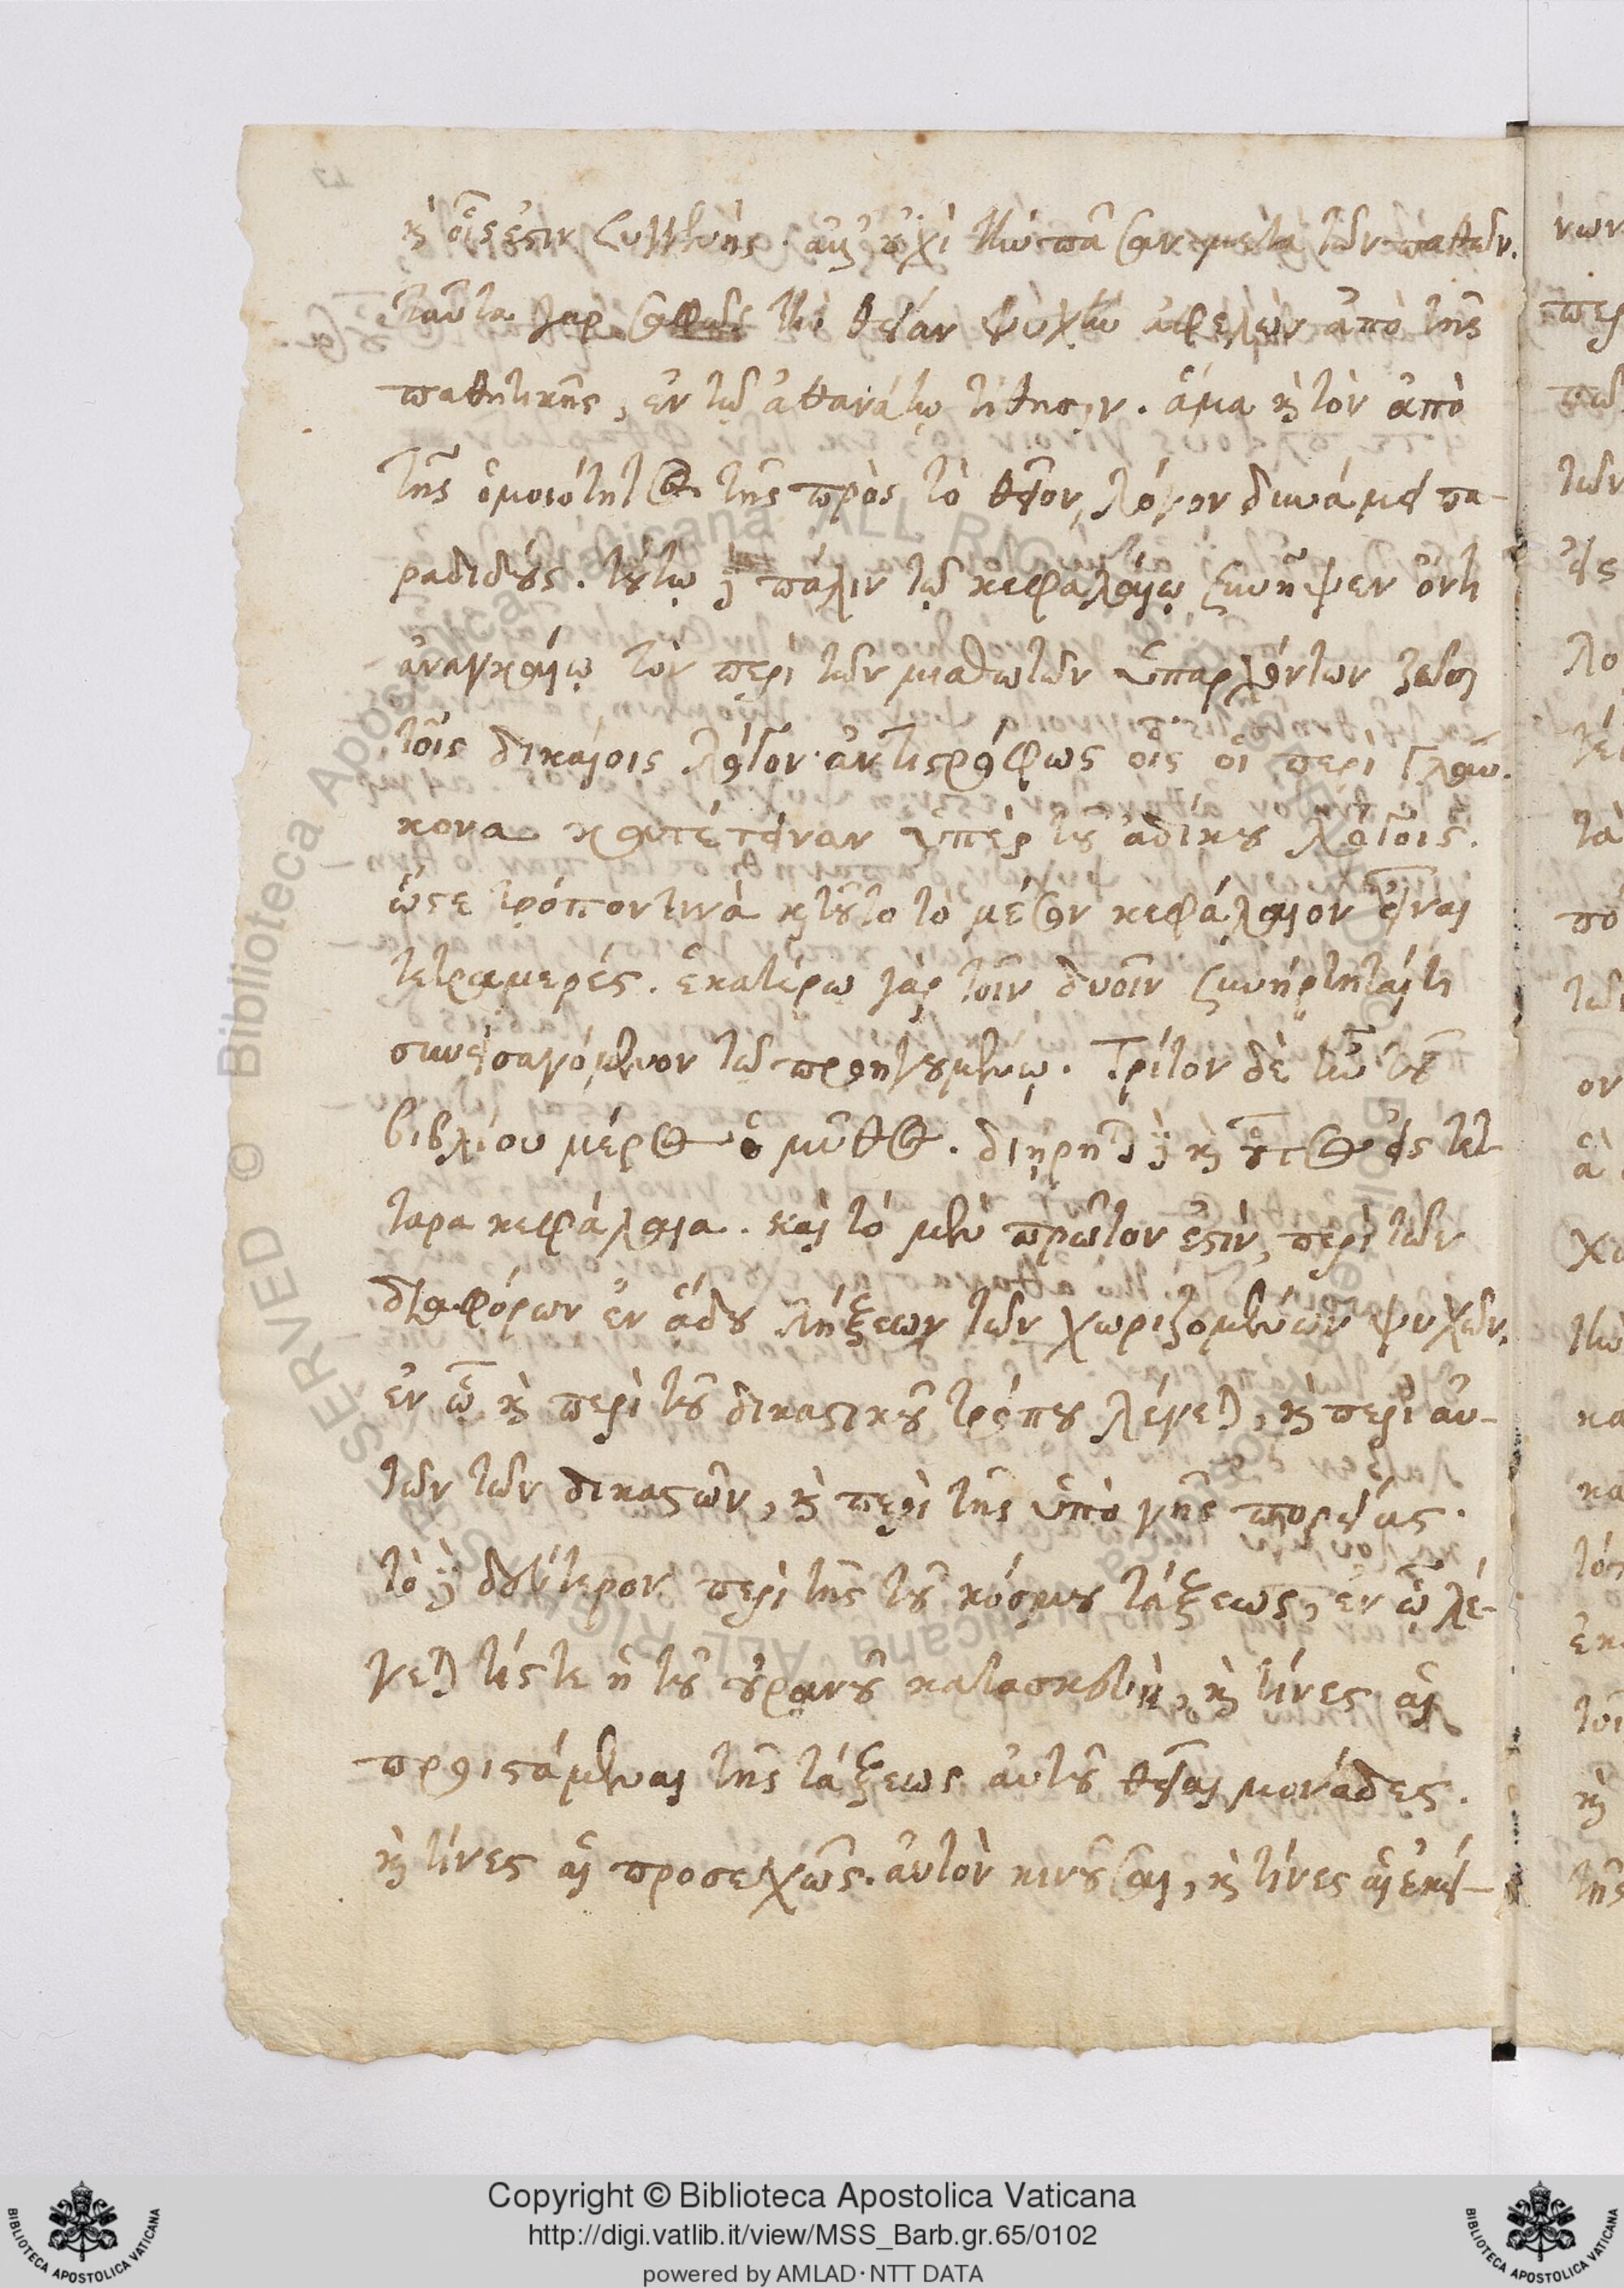 καὶ οἷς ἐστιν συγγενής. ἀλλ' οὐχὶ τὴν πᾶσαν μετὰ τῶν παθῶν.
ταῦτα γὰρ σαφῶς τὴν θείαν ψυχὴν ἀφελὼν ἀπὸ τῆς
παθητικῆς, ἐν τῷ ἀθανάτῳ τίθησιν. ἅμα καὶ τὸν ἀπὸ
τῆς ὁμοιότητος τῆς πρὸς τὸ θεῖον, λόγον δυνάμει πα-
ραδιδούς. τούτῳ δὲ πάλιν τῷ κεφαλαίῳ συνῆψεν ὄντι
ἀναγκαίῳ τὸν περὶ τῶν μισθῶν τῶν ὑπαρχόντων ζῶσι
τοῖς δικαίοις λόγον ἀντιστρόφως οἷς οἱ περὶ Γλαύ-
κονα κατέτειναν ὑπὲρ τοῦ ἀδίκου λόγοις.
ὥστε τρόπον τινὰ καὶ τοῦτο τὸ μέσον κεφάλαιον εἶναι
τετραμερές. ἑκατέρῳ γὰρ τοῖν δυοῖν συνήρτηταί τι
συνεισαγόμενον τῷ προηγουμένῳ. Τρίτον δὲ ἦν τοῦ
βιβλίου μέρος ὁ μῦθος. διῄρηται δὲ καὶ οὗτος εἰς τέτ-
ταρα κεφάλαια. καὶ τὸ μὲν πρῶτον ἐστὶν, περὶ τῶν
διαφόρων ἐν ᾅδου λήξεων τῶν χωριζομένων ψυχῶν,
ἐν ᾧ καὶ περὶ τοῦ δικαστικοῦ τρόπου λέγεται, καὶ περὶ αὐ-
τῶν τῶν δικαστῶν, καὶ περὶ τῆς ὑπὸ γῆς πορείας.
τὸ δὲ δεύτερον περὶ τῆς τοῦ κόσμου τάξεως, ἐν ᾧ λέ-
γεται τίς τε ἡ τοῦ οὐρανοῦ κατασκευὴ, καὶ τίνες αἱ
προιστάμεναι τῆς τάξεως αὐτοῦ θεῖαι μονάδες.
καὶ τίνες αἱ προσεχῶς αὐτὸν κινοῦσαι, καὶ τίνες αἱ ἐκεί-
Copyright © Biblioteca Apostolica Vaticana
http://digi.vatlib.it/view/MSS_Barb.gr.65/0102
powered by AMLAD·NTT DATA